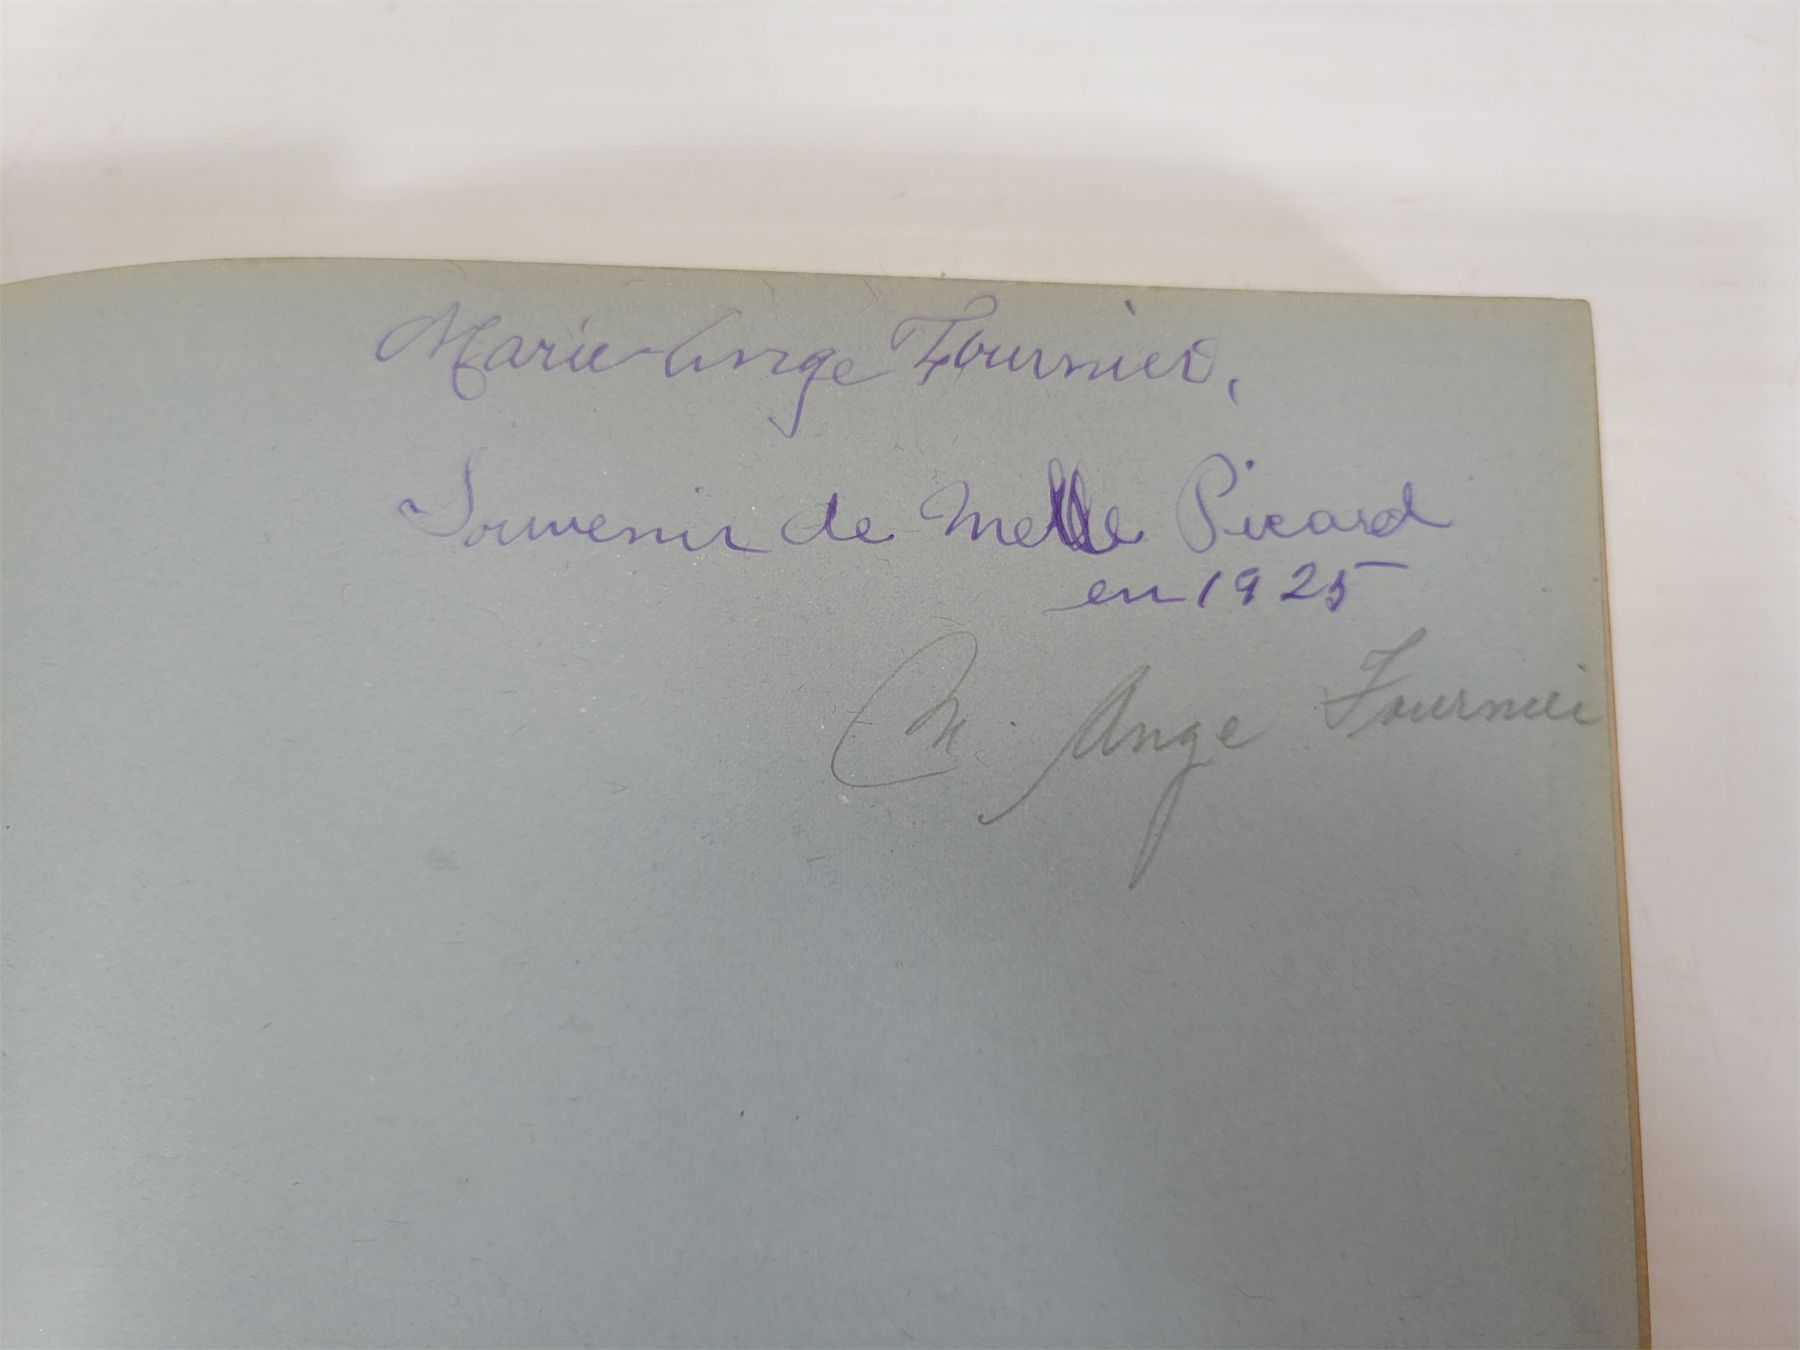 Marie-Ange Fournier,
Souvenir de Melle Picard
en 1925
M. Ange Fournier